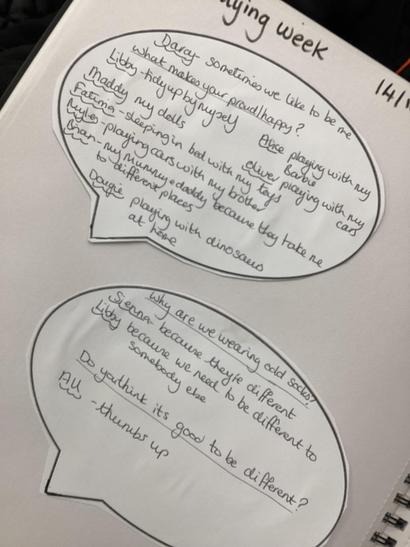 ying week
14/1
Darcy - Sometimes we like to be me
What makes your proud/happy?
Libby - tidy up by myself
Maddy my dolls
Alice playing with my Barbie
Fatima - sleeping in bed with my toys
Oliver playing with my cars
Myles - playing cars with my brother
Brian - my mummy + daddy because they take me
to different places
Dougie playing with dinosaurs
at home
Why are we wearing odd socks?
Sienna - because they're different
Libby because we need to be different to
somebody else
Do you think it's good to be different?
All - thumbs up